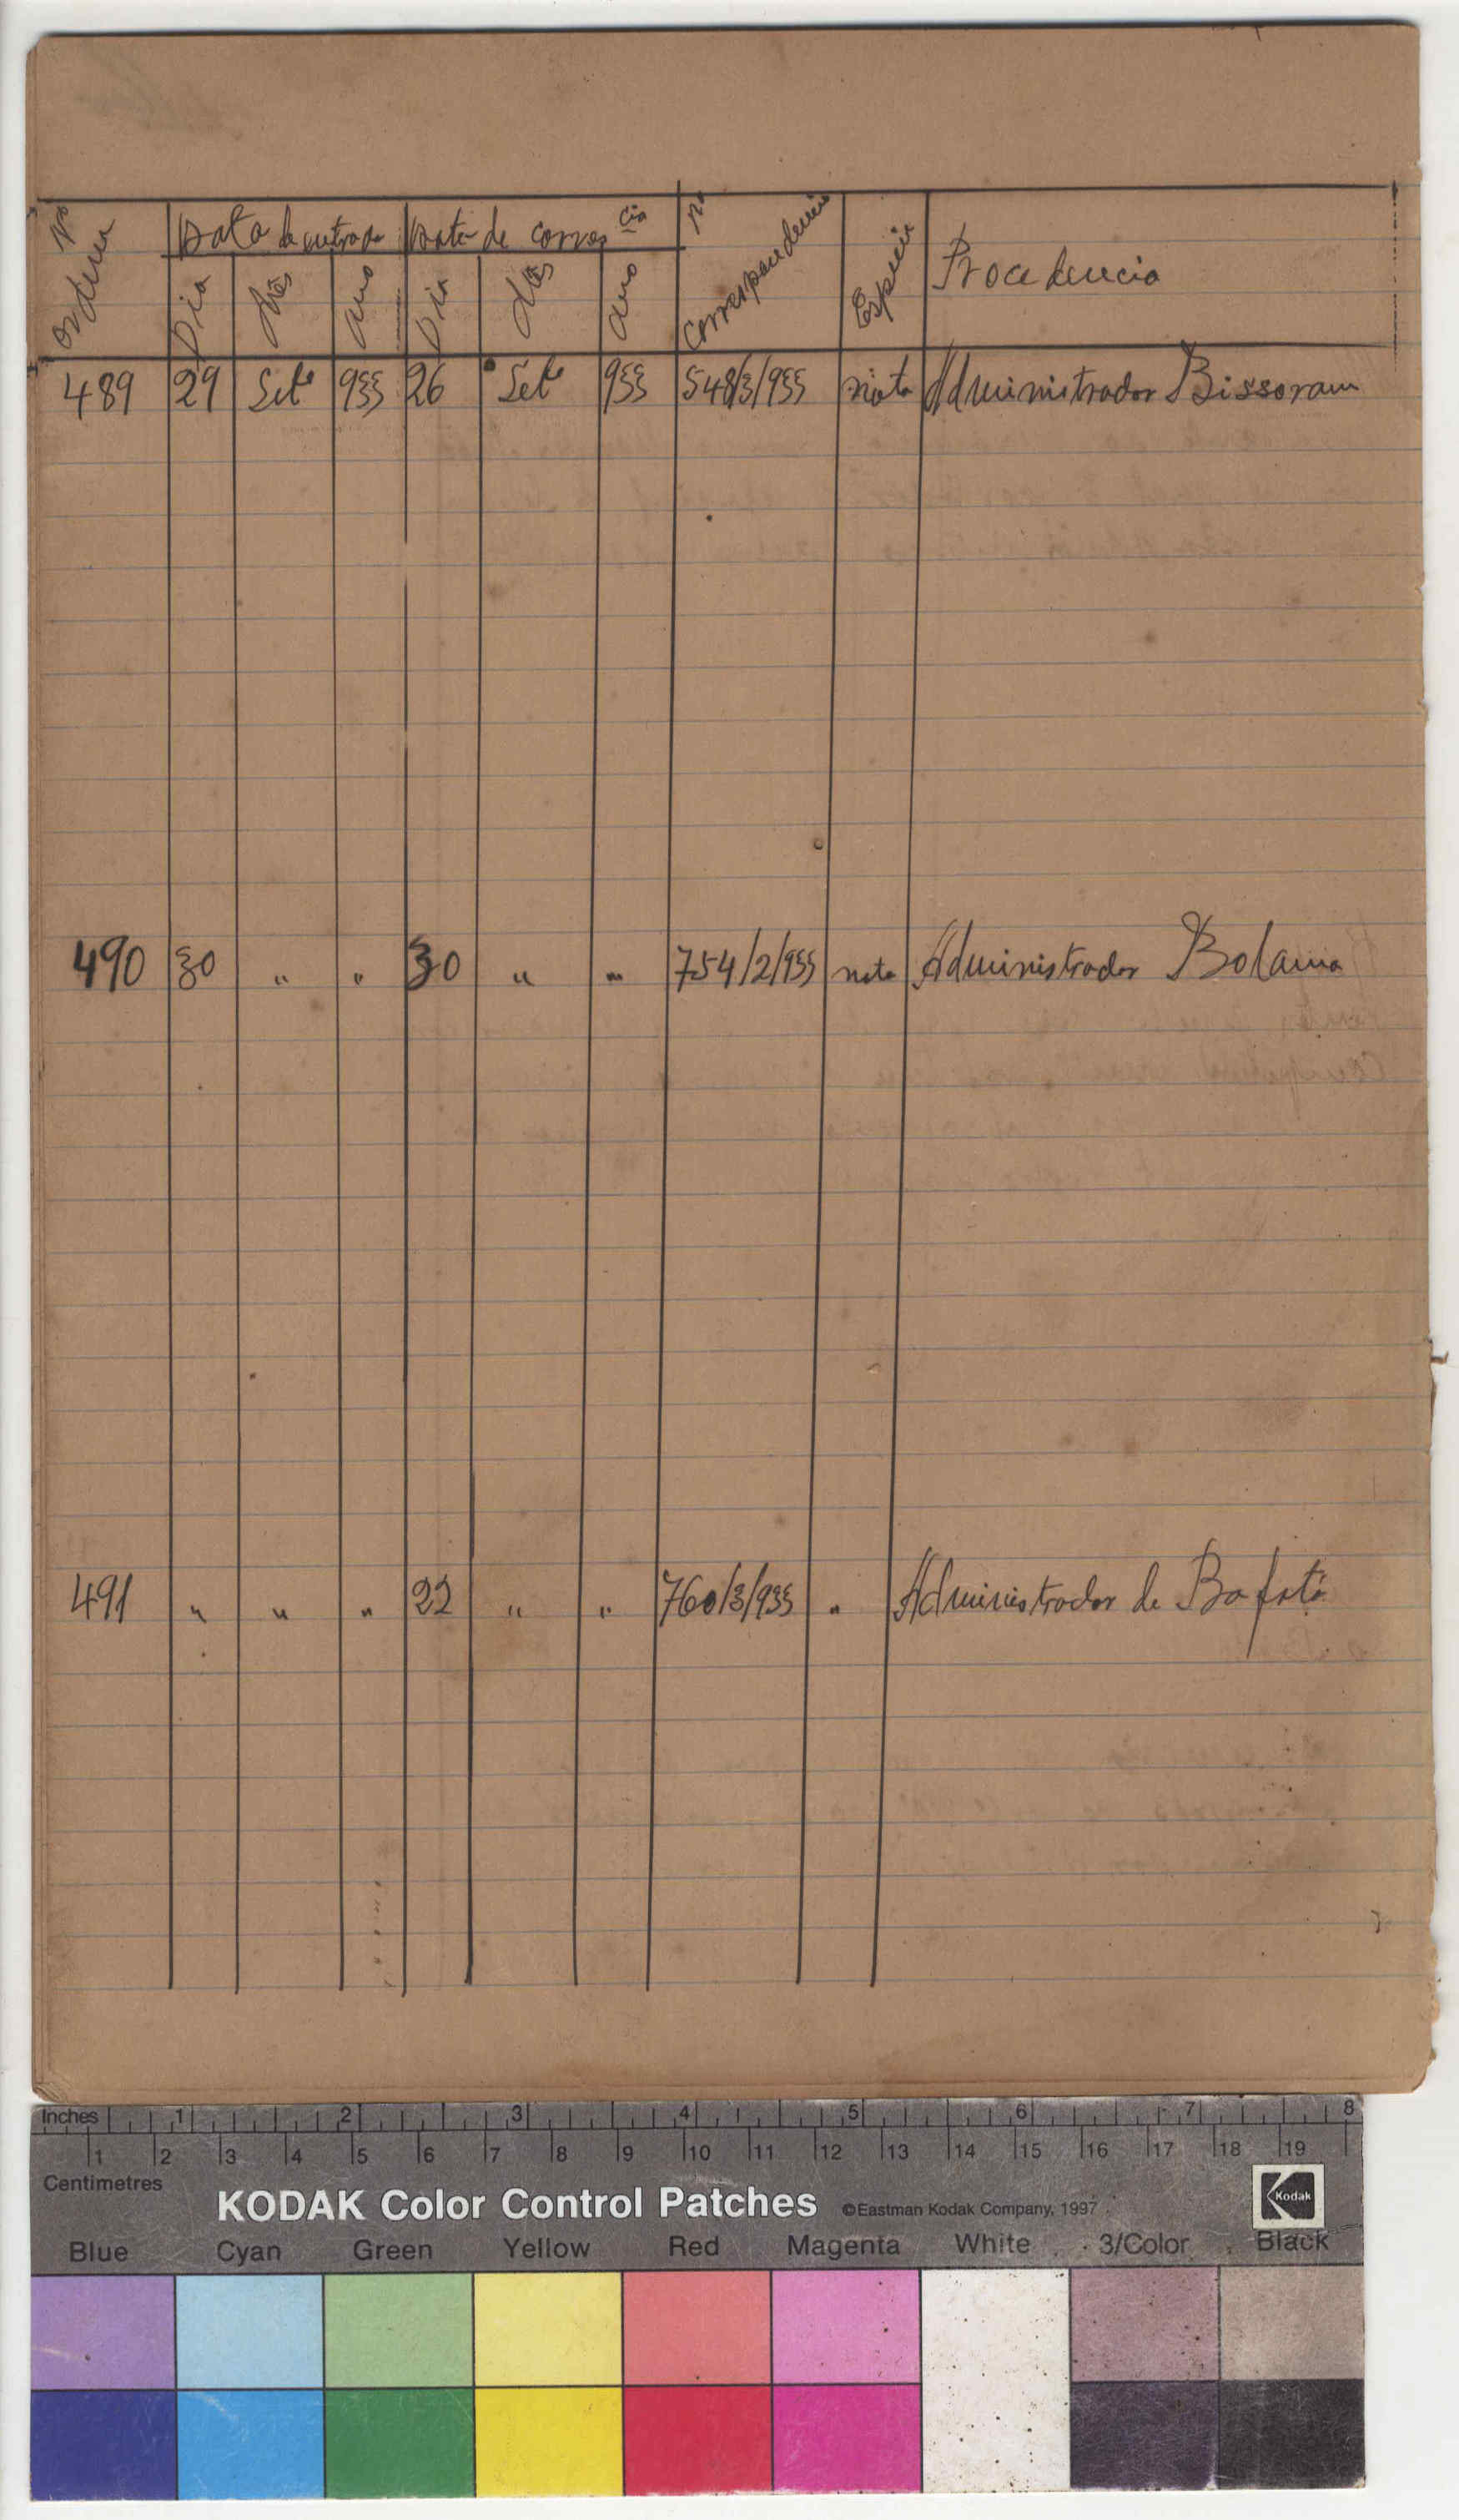 Nº ordem Data de entrada Data de corresᶜⁱᵃ Nº correspondencia Especie Procedencia
Dia Mês Ano Dia Mês Ano
489 29 Setº 935 26 Setº 935 548/3/935 nota Administrador Bissoram
490 30 " " 30 " " 754/2/935 nota Administrador Bolama
491 " " " 22 " " 760/3/935 " Administrador de Bafatá
Inches 1 2 3 4 5 6 7 8
1 2 3 4 5 6 7 8 9 10 11 12 13 14 15 16 17 18 19
Centimetres
KODAK Color Control Patches ©Eastman Kodak Company, 1997 Kodak
Blue Cyan Green Yellow Red Magenta White 3/Color Black